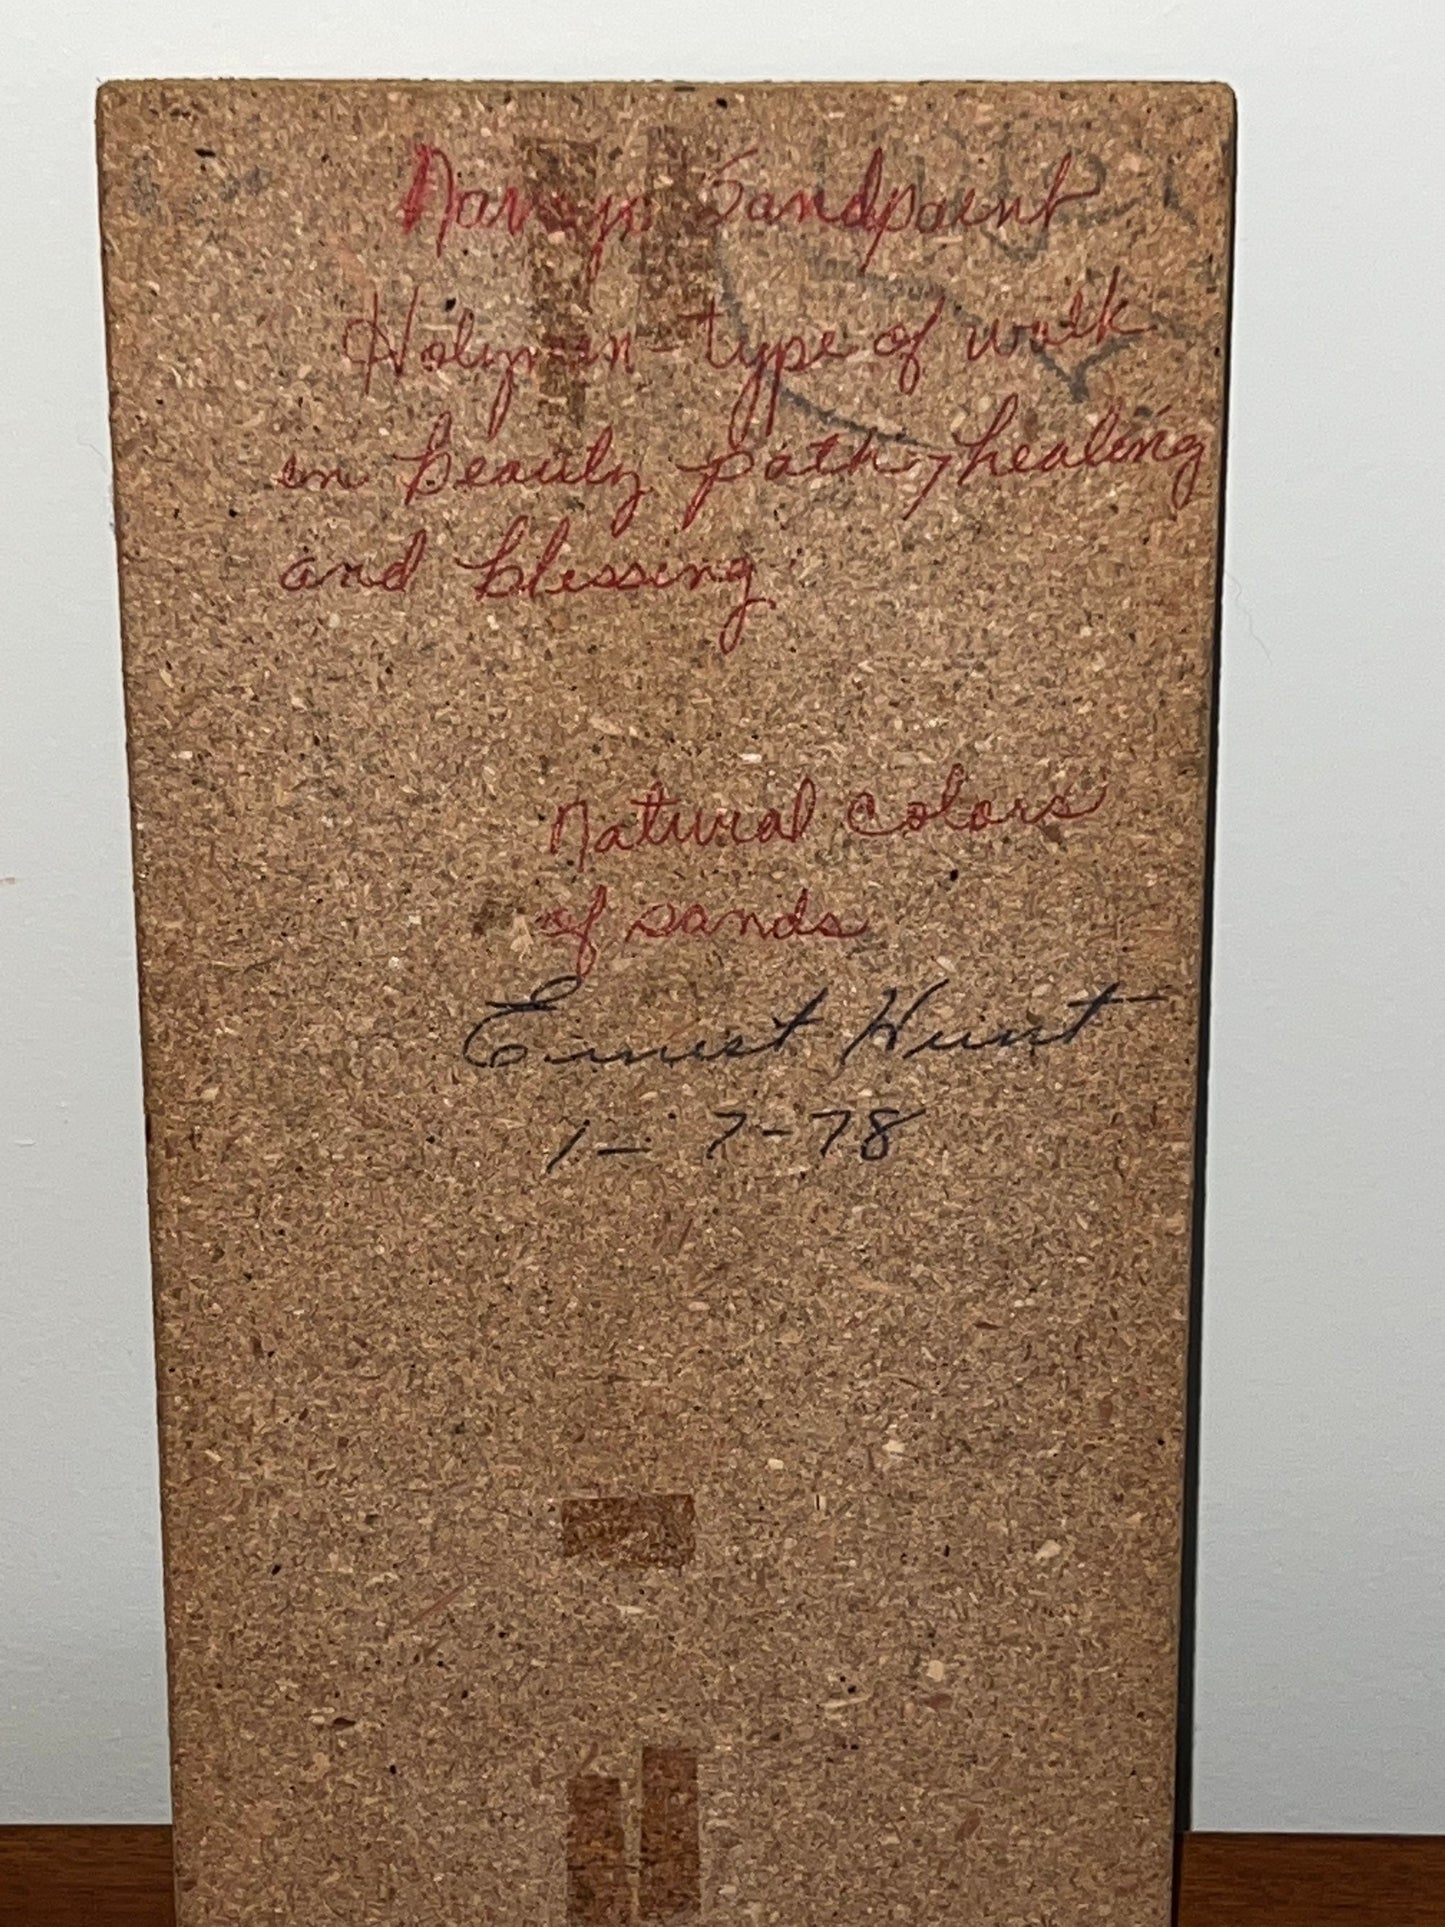 Navajo Sandpaint
Holyman - type of walk
in beauty path, healing
and blessing
Natural colors
of sands
Ernest Hunt
1-7-78